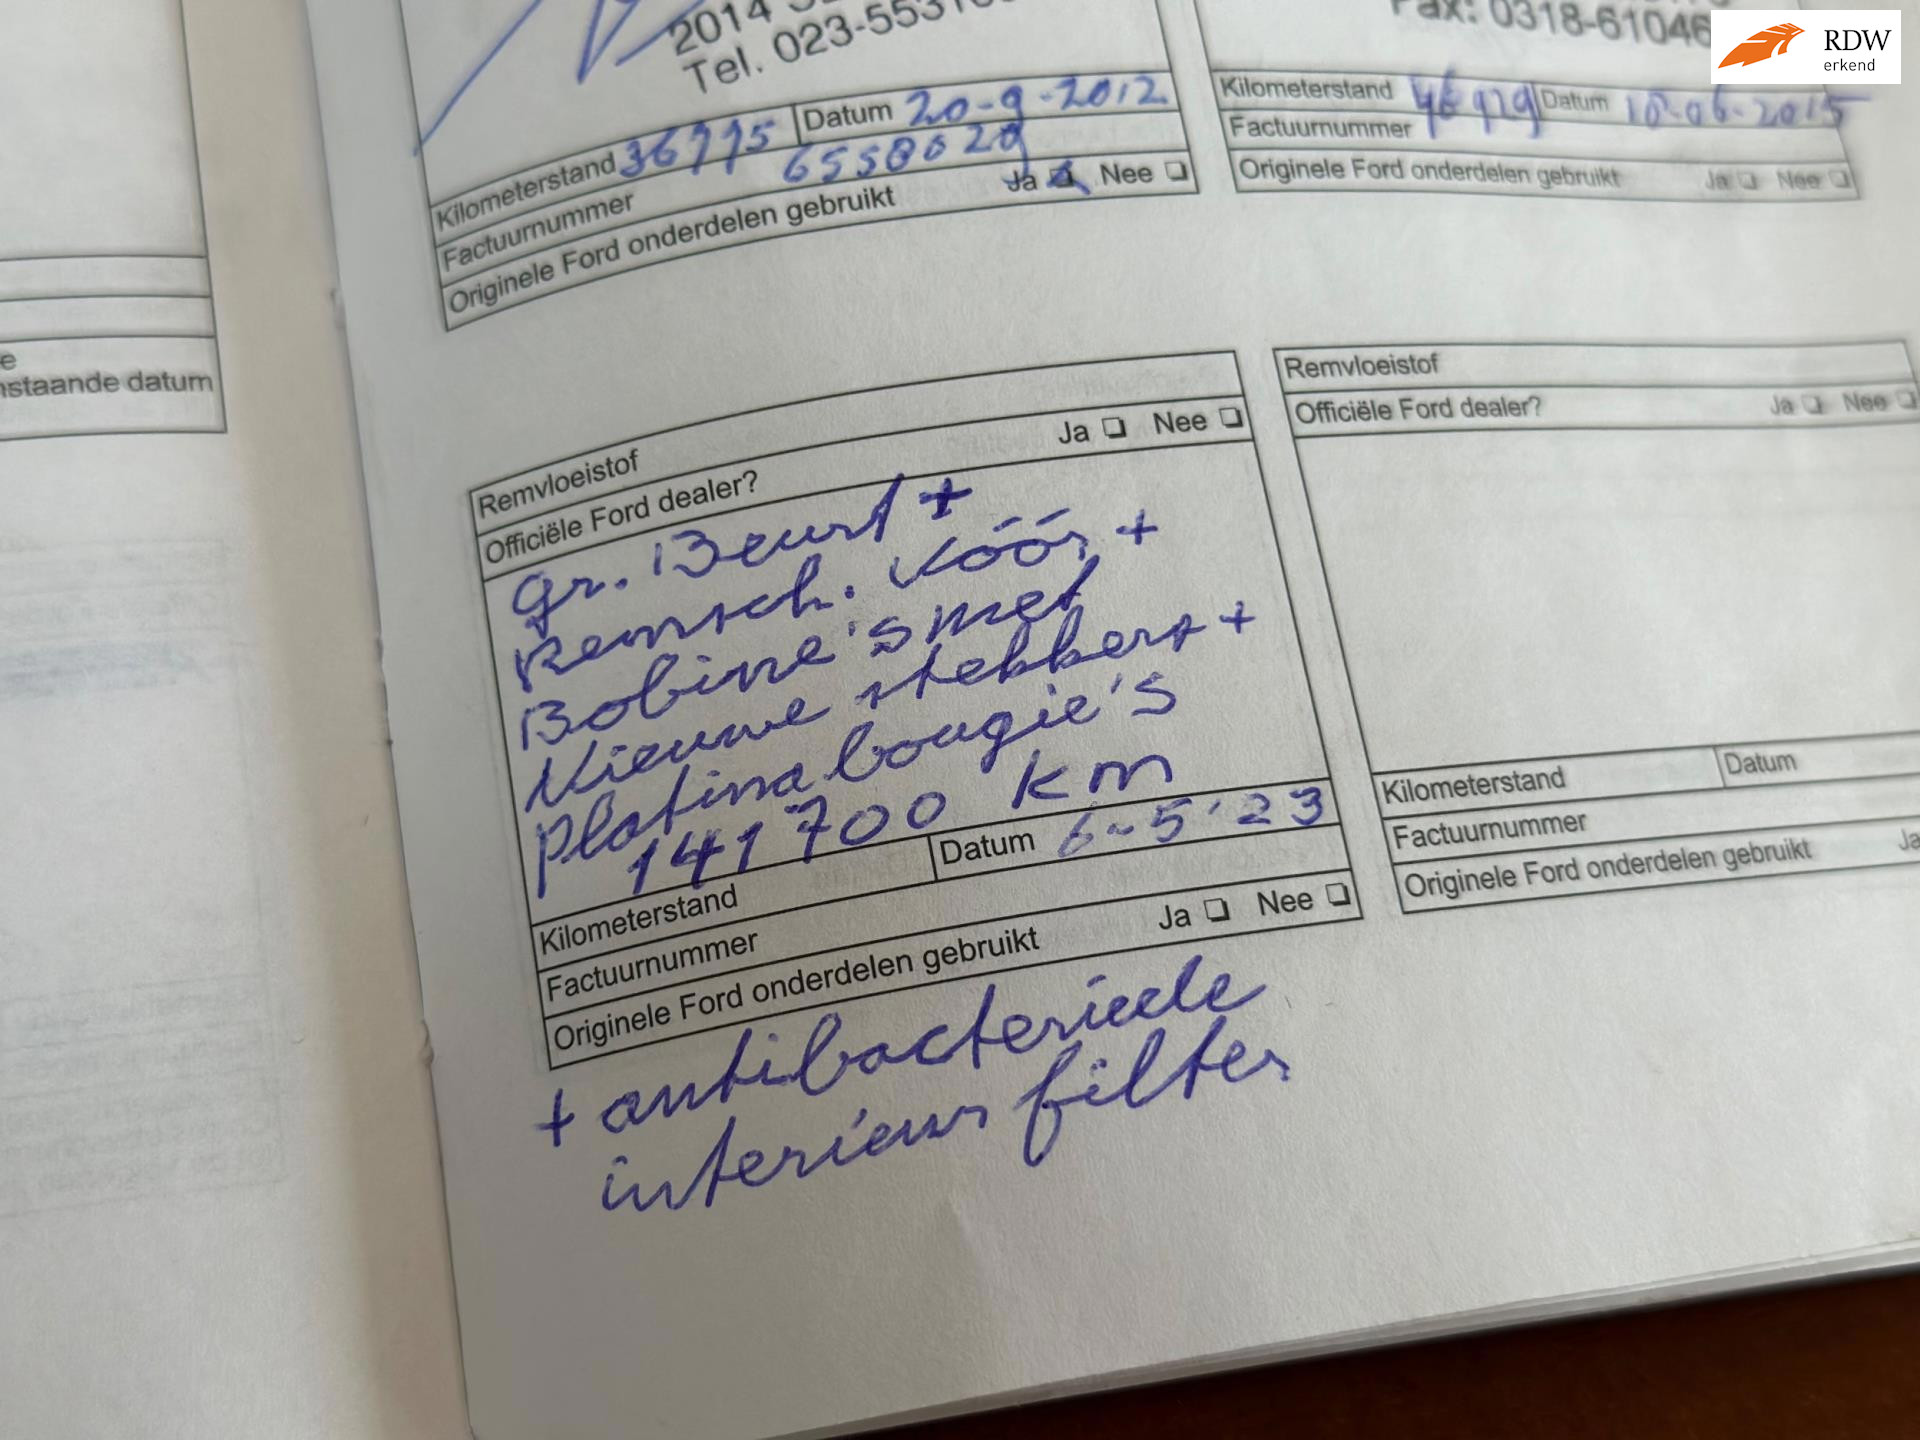 Tel. 023-5531
Fax: 0318-61046
RDW
erkend
Kilometerstand 36775 Datum 20-9-2012
Factuurnummer 6558029
Originele Ford onderdelen gebruikt Ja Nee
Kilometerstand Datum 10-06-2015
Factuurnummer
Originele Ford onderdelen gebruikt Ja Nee
nstaande datum
Remvloeistof
Officiële Ford dealer? Ja Nee
gr. Beurt +
Remsch. vóór +
Bobine's met
Nieuwe stekkers +
platina bougie's
141700 km
Kilometerstand Datum 6-5'23
Factuurnummer
Originele Ford onderdelen gebruikt Ja Nee
+ antibacteriede
interieur filter
Remvloeistof
Officiële Ford dealer? Ja Nee
Kilometerstand Datum
Factuurnummer
Originele Ford onderdelen gebruikt Ja